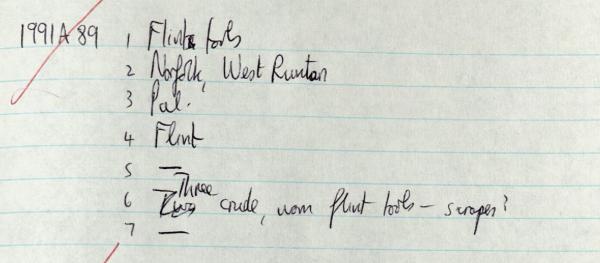 1991A 89 1 Flint tools
2 Norfolk, West Runton
3 Pal.
4 Flint
5 —
6 — Three crude, worn flint tools — scrapers?
7 —